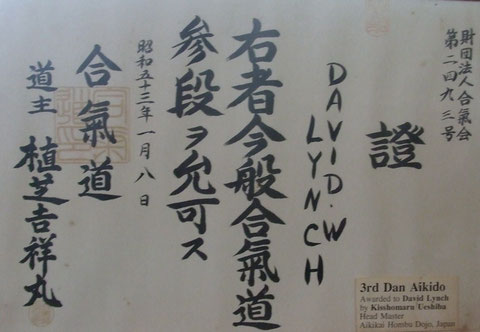 財団法人合氣会
第二四九三号
證
DAVID.W
LYNCH
右者今般合氣道
参段ヲ允可ス
昭和五十三年一月八日
合氣道
道主 植芝吉祥丸
3rd Dan Aikido
Awarded to David Lynch
by Kisshomaru Ueshiba
Head Master
Aikikai Hombu Dojo, Japan